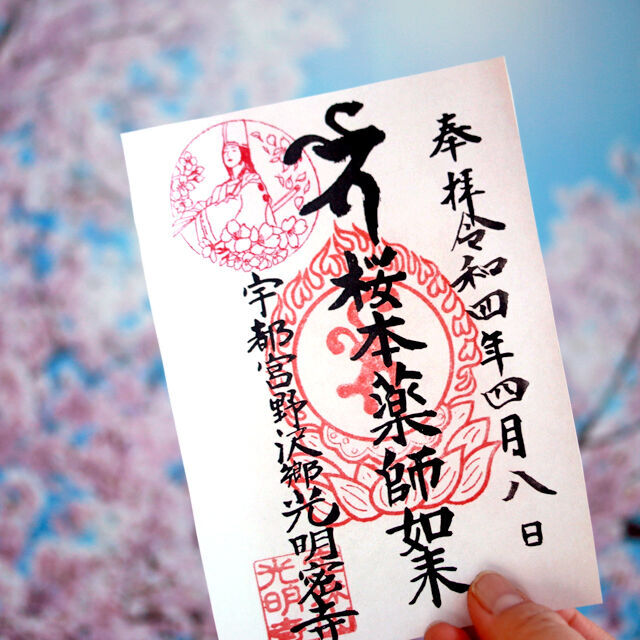 奉拝 令和四年四月八日
桜本薬師如来
宇都宮野沢郷光明密寺
光明寺